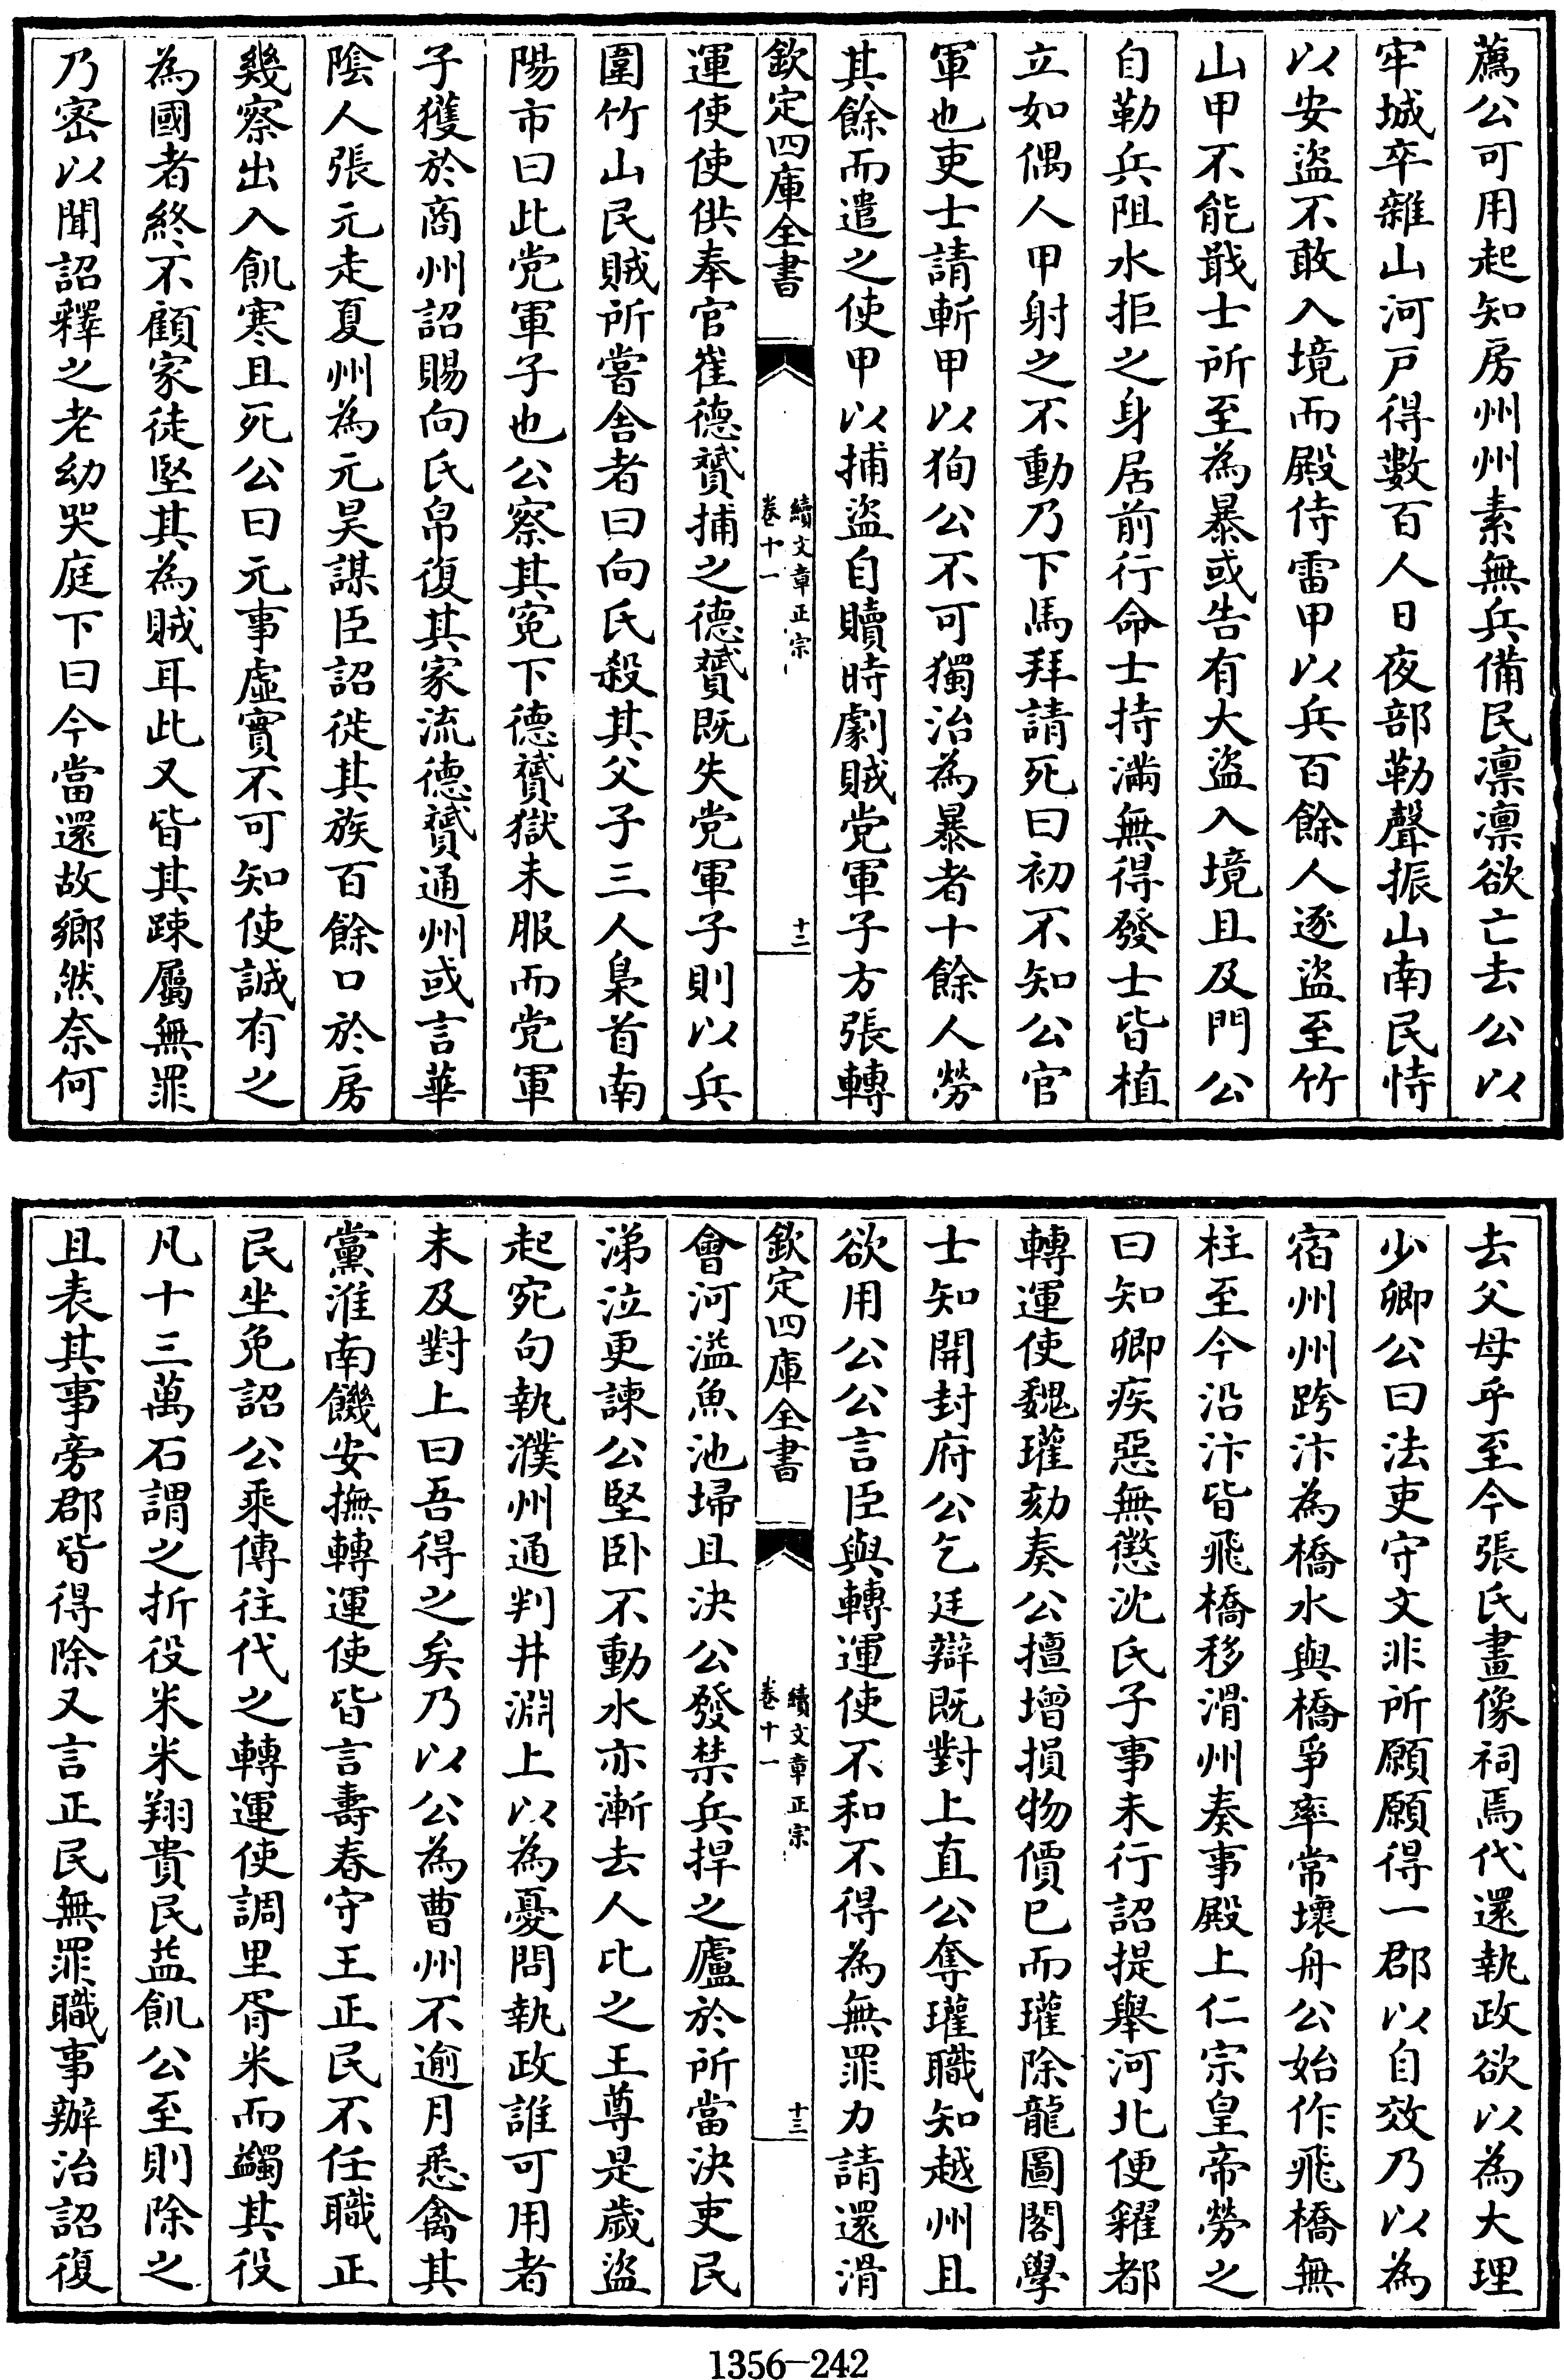 薦公可用起知房州州素無兵備民凛凛欲亡去公以
牢城卒雜山河戸得數百人日夜部勒聲振山南民恃
以安盜不敢入境而殿侍雷甲以兵百餘人逐盜至竹
山甲不能戢士所至為暴或告有大盜入境且及門公
自勒兵阻水拒之身居前行命士持滿無得發士皆植
立如偶人甲射之不動乃下馬拜請死曰初不知公官
軍也吏士請斬甲以狥公不可獨治為暴者十餘人勞
其餘而遣之使甲以捕盜自贖時劇賊党軍子方張轉
欽定四庫全書
續文章正宗
卷十一
十二
運使使供奉官崔德贇捕之德贇既失党軍子則以兵
圍竹山民賊所嘗舍者曰向氏殺其父子三人梟首南
陽市曰此党軍子也公察其寃下德贇獄未服而党軍
子獲於商州詔賜向氏帛復其家流德贇通州或言華
陰人張元走夏州為元昊謀臣詔徙其族百餘口於房
幾察出入飢寒且死公曰元事虛實不可知使誠有之
為國者終不顧家徒堅其為賊耳此又皆其踈屬無罪
乃密以聞詔釋之老幼哭庭下曰今當還故鄉然奈何
去父母乎至今張氏畫像祠焉代還執政欲以為大理
少卿公曰法吏守文非所願願得一郡以自效乃以為
宿州州跨汴為橋水與橋爭率常壞舟公始作飛橋無
柱至今沿汴皆飛橋移滑州奏事殿上仁宗皇帝勞之
曰知卿疾惡無懲沈氏子事未行詔提舉河北便糴都
轉運使魏瓘劾奏公擅增損物價已而瓘除龍圖閣學
士知開封府公乞廷辯既對上直公奪瓘職知越州且
欲用公公言臣與轉運使不和不得為無罪力請還滑
欽定四庫全書
續文章正宗
卷十一
十三
會河溢魚池埽且決公發禁兵捍之廬於所當決吏民
涕泣更諫公堅卧不動水亦漸去人比之王尊是歲盜
起宛句執濮州通判井淵上以為憂問執政誰可用者
未及對上曰吾得之矣乃以公為曹州不逾月悉禽其
黨淮南饑安撫轉運使皆言壽春守王正民不任職正
民坐免詔公乘傳往代之轉運使調里胥米而蠲其役
凡十三萬石謂之折役米米翔貴民益飢公至則除之
且表其事旁郡皆得除又言正民無罪職事辦治詔復
1356—242